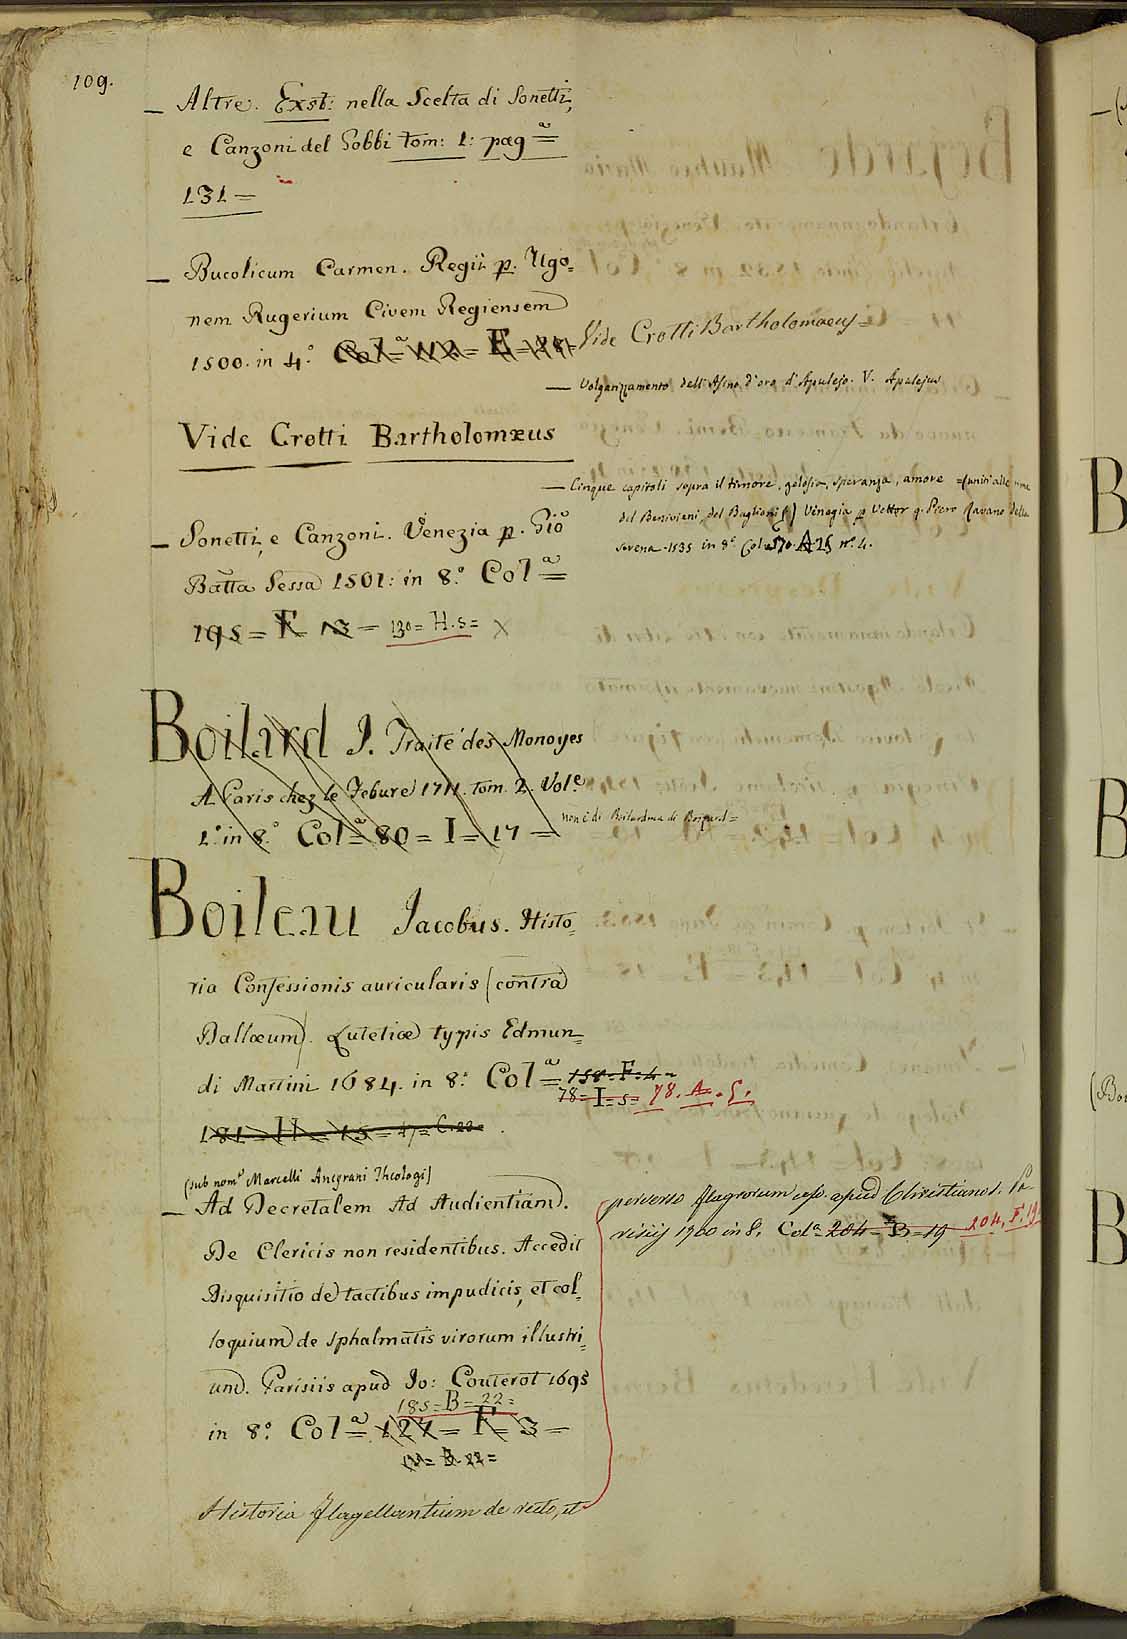 109.
— Altre. Exst: nella Scelta di Sonetti,
e Canzoni del Gobbi tom: 1: pag.ª =
131 =
— Bucolicum Carmen. Regii p. Ugo=
nem Rugerium Civem Regiensem
1500. in 4.° Col.ª =
Vide Crotti Bartholomaeus =
— Volgarizzamento dell'Asino d'oro d'Apulejo. V. Apulejus
Vide Crotti Bartholomæus
— Cinque capitoli sopra il timore, gelosia, speranza, amore = (uniti alle rime
del Benivieni, del Baglioni) Venegia p Vettor q. Piero Ravano della
Serena. 1535 in 8° Col.ª 170. A. 25 n°. 4.
— Sonetti, e Canzoni. Venezia p. Gio
Batta Sessa 1501: in 8.° Col.ª =
195 = F = 13 = 130 = H. 5 = X
Boilard J. Traité des Monoyes
A Paris chez le Febure 1711. tom. 2. Vol.e
1.° in 8.° Col.ª = 80 = I = 17 =
non è di Boilard ma di Boizard =
Boileau Jacobus. Histo=
ria Confessionis auricularis (contra
Dallœum). Lutetiæ typis Edmun=
di Martini 1684. in 8.° Col.ª = 158 = F. 4 =
78 = I = 5 = 78. A. 5.
181 = H = 15 = 47 = C. 22 =
(sub nom.e Marcelli Ancyrani Theologi)
— Ad Decretalem Ad Audientiam.
De Clericis non residentibus. Accedit
Disquisitio de tactibus impudicis, et col=
loquium de sphalmatis virorum illustri=
um. Parisiis apud Jo: Couterot 1695
185 = B = 22 =
in 8.° Col.ª = 127 = F = 3 =
Historia flagellantium de recto, et
perverso flagrorum usu apud Christianos. Pa=
risiis 1700 in 8. Col.ª 204 = B = 19 204. F. 19